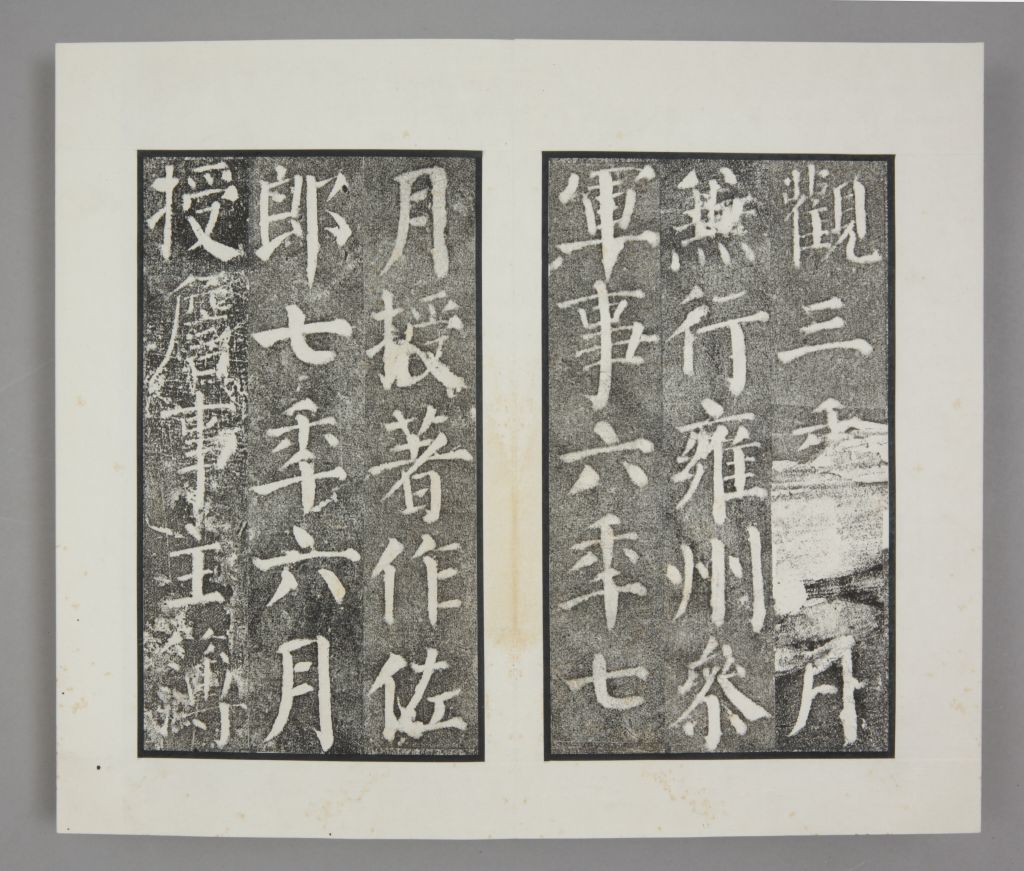 觀三年月
兼行雍州參
軍事六年七
月授著作佐
郎七年六月
授詹事主簿